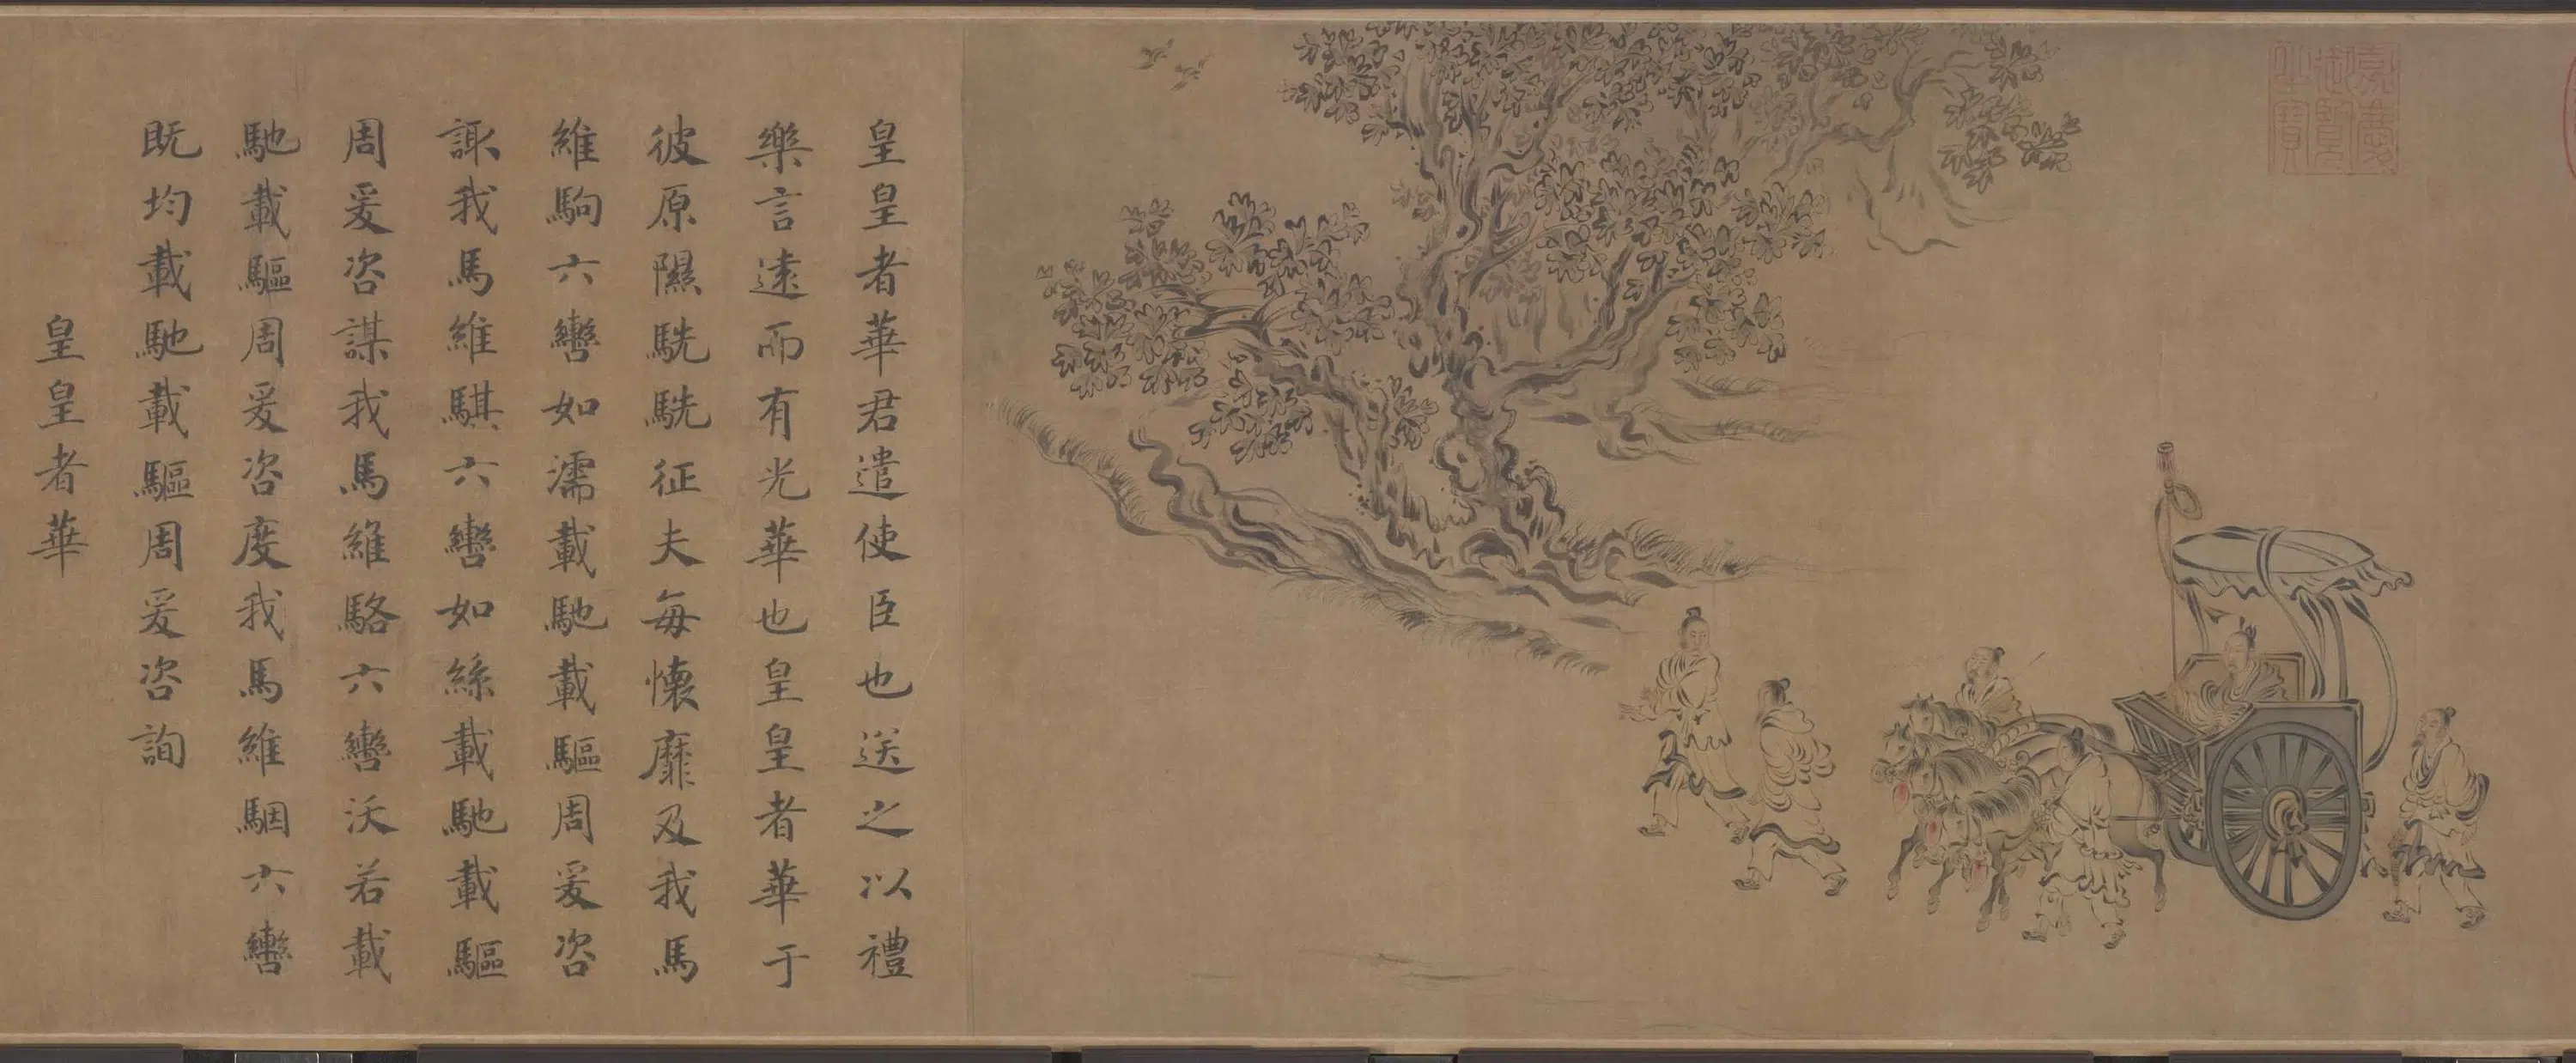 嘉慶御覽之寶
皇皇者華君遣使臣也送之以禮
樂言遠而有光華也皇皇者華于
彼原隰駪駪征夫每懷靡及我馬
維駒六轡如濡載馳載驅周爰咨
諏我馬維騏六轡如絲載馳載驅
周爰咨謀我馬維駱六轡沃若載
馳載驅周爰咨度我馬維駰六轡
既均載馳載驅周爰咨詢
皇皇者華